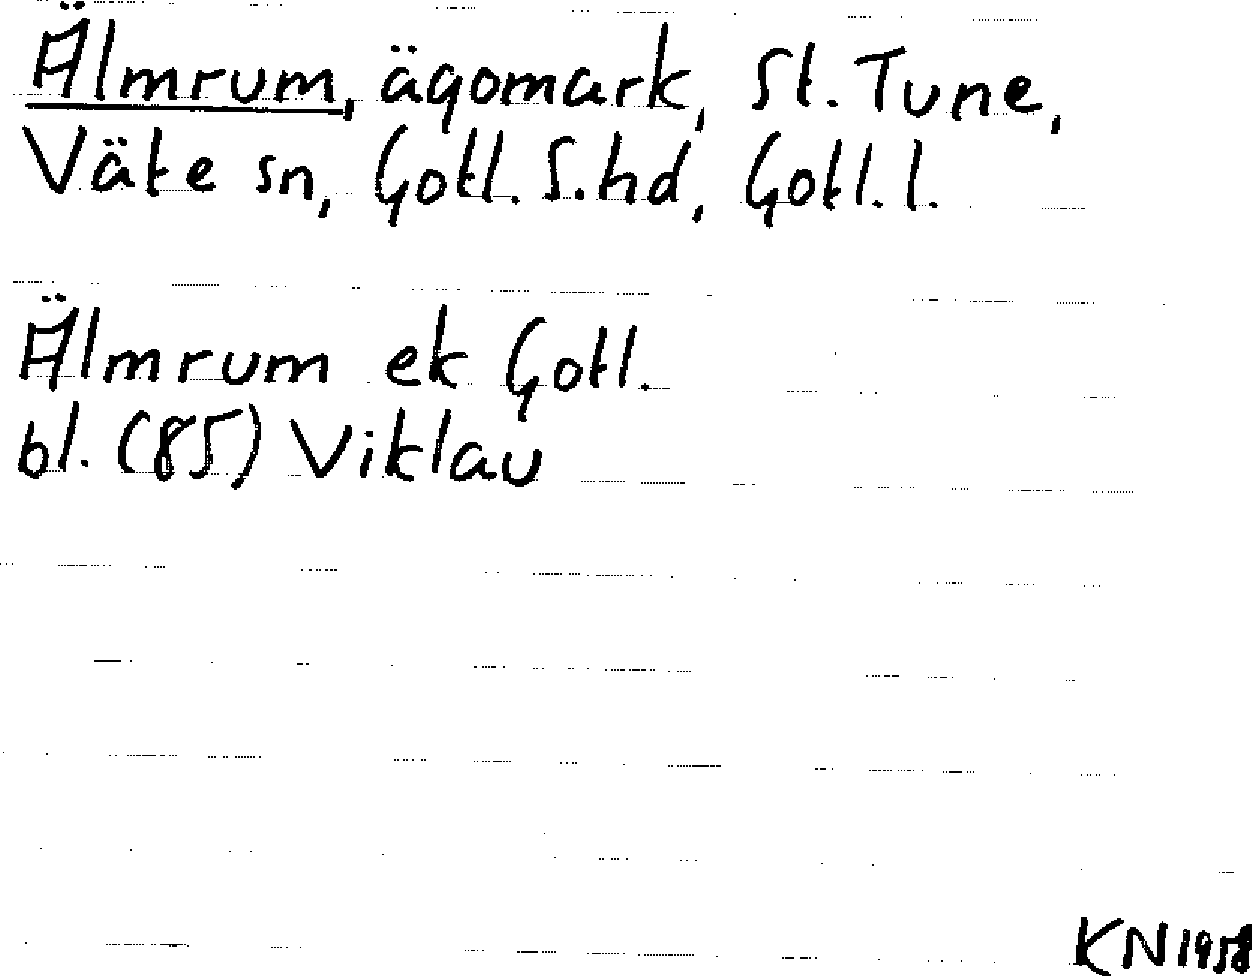 Älmrum, ägomark, St. Tune,
Väte sn, Gotl. S. hd, Gotl. l.
Älmrum ek Gotl.
bl. (85) Viklau
KN 1958